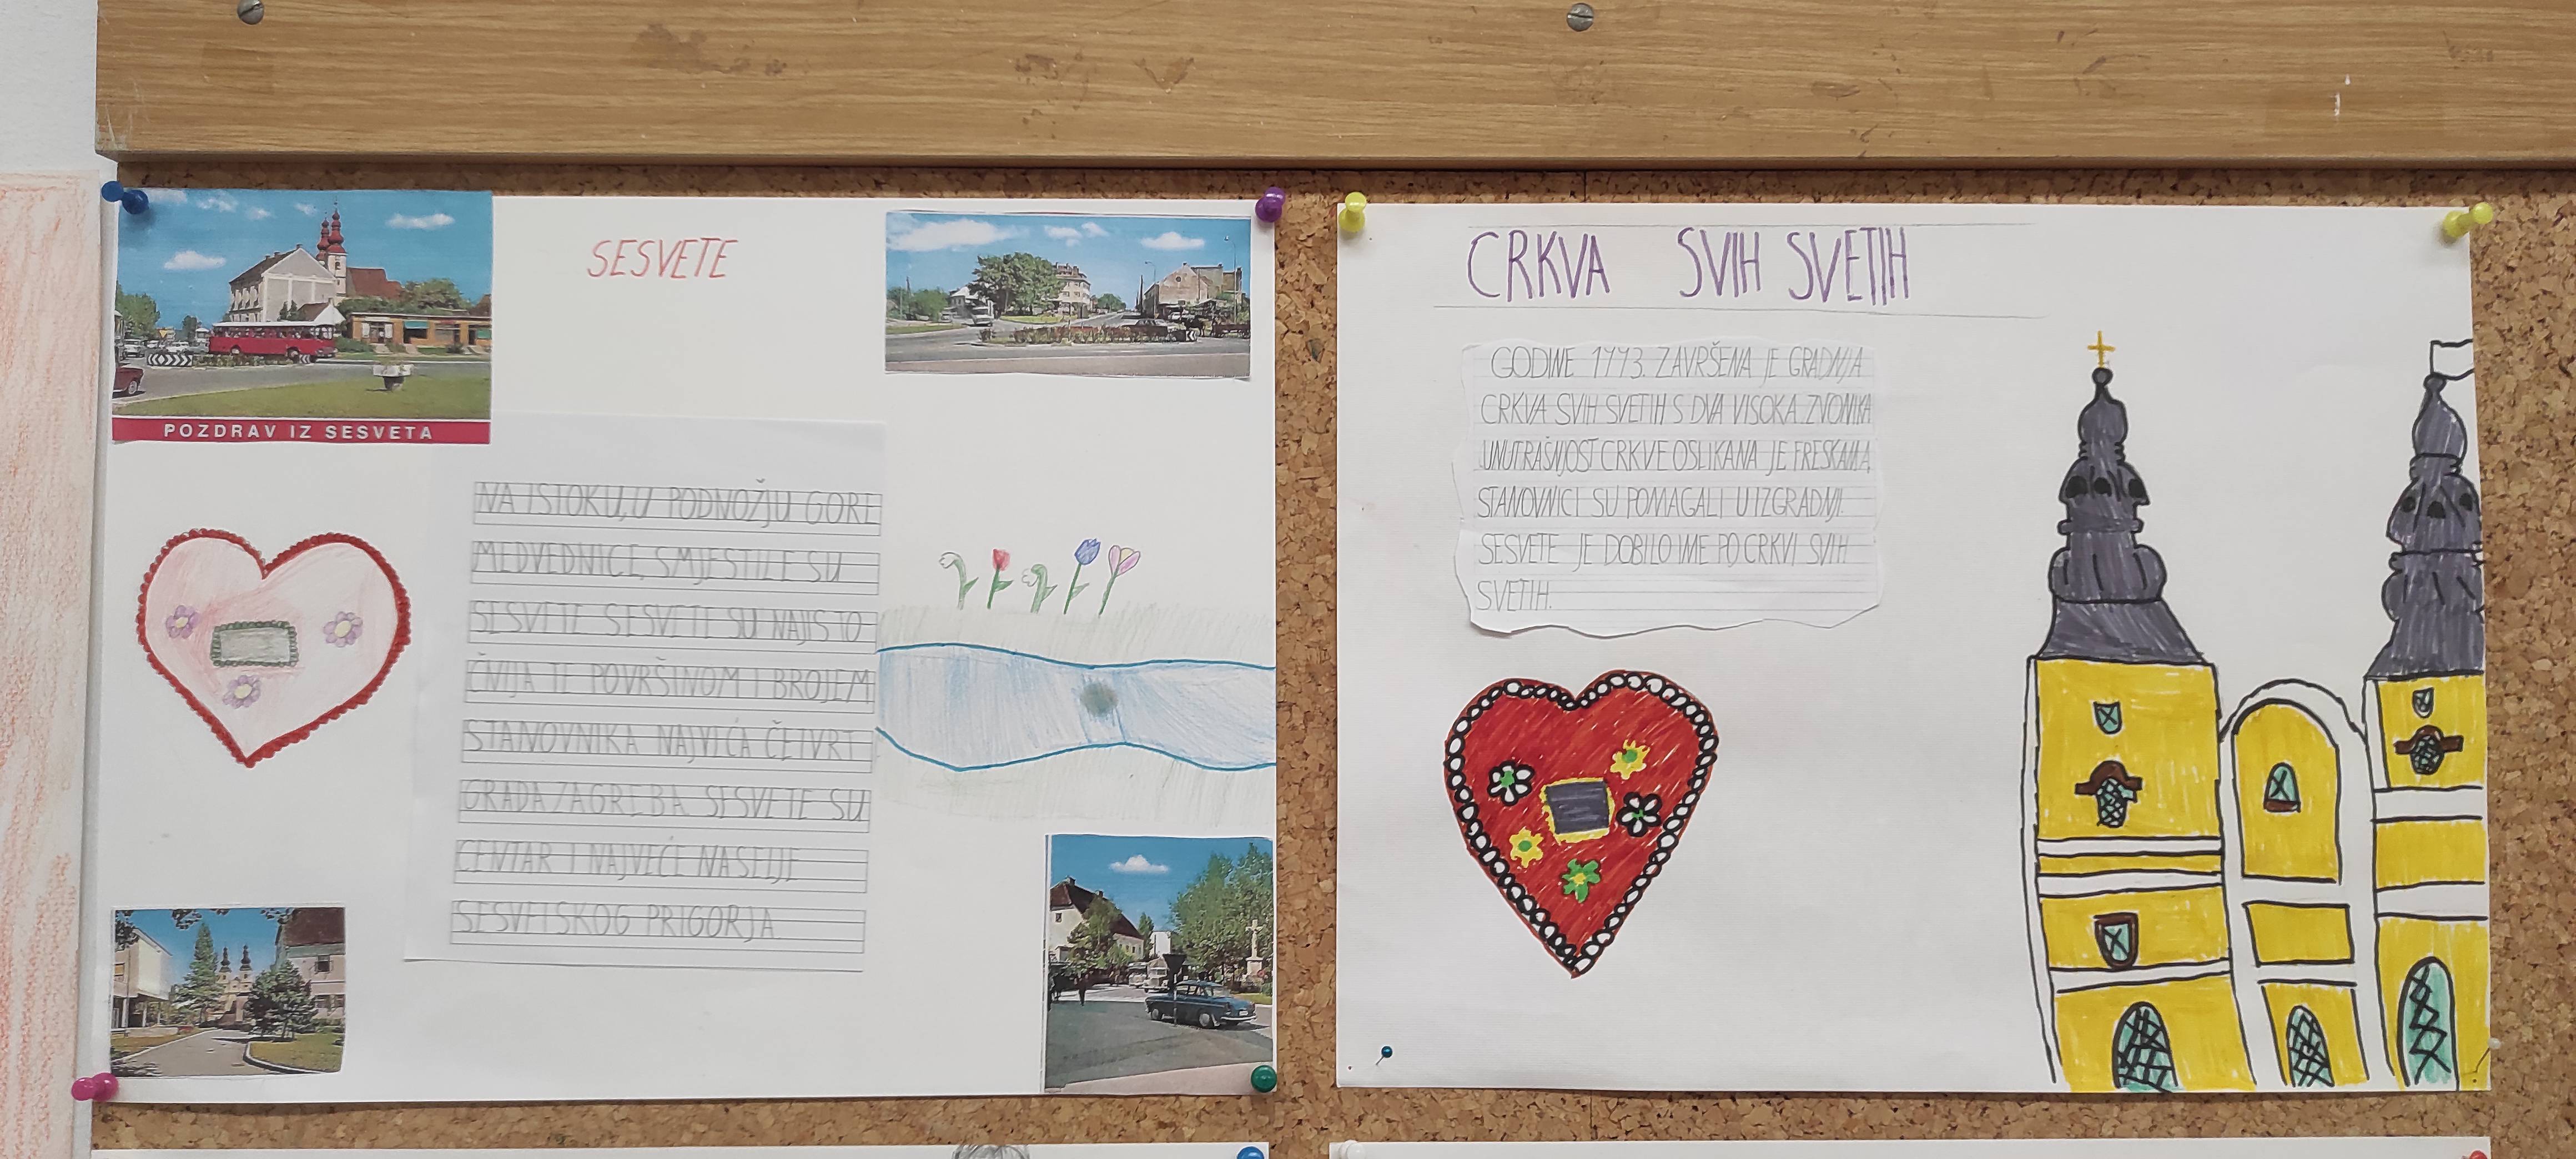 SESVETE
POZDRAV IZ SESVETA
NA ISTOKU, U PODNOŽJU GORE
MEDVEDNICE SMJESTILE SU
SESVETE SESVETE SU NAJISTO
ČNIJA TE POVRŠINOM I BROJEM
STANOVNIKA NAJVIĆA ČETVRT
GRADA ZAGREBA SESVETE SU
CENTAR I NAJVEĆE NASELJE
SESVETSKOG PRIGORJA
CRKVA SVIH SVETIH
GODINE 1773. ZAVRŠENA JE GRADNJA
CRKVA SVIH SVETIH S DVA VISOKA ZVONIKA
UNUTRAŠNJOST CRKVE OSLIKANA JE FRESKAMA
STANOVNICI SU POMAGALI U IZGRADNJI.
SESVETE JE DOBILO IME PO CRKVI SVIH
SVETIH.